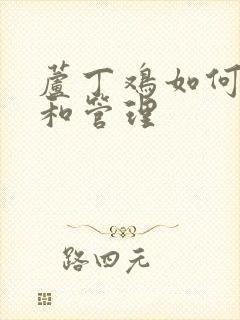 蘆丁鸡如何
和管理
路四元